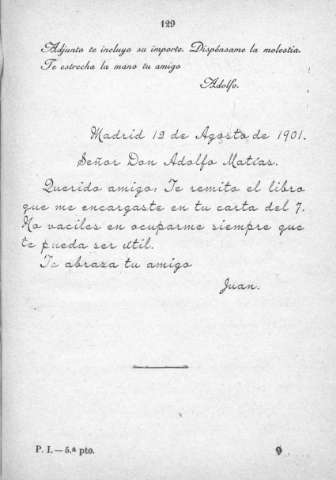 129
Adjunto te incluyo su importe. Dispénsame la molestia.
Te estrecha la mano tu amigo
Adolfo.
Madrid 12 de Agosto de 1901.
Señor Don Adolfo Matías.
Querido amigo: Te remito el libro
que me encargaste en tu carta del 7.
No vaciles en ocuparme siempre que
te pueda ser útil.
Te abraza tu amigo
Juan.
P. I.—5.ª pto.
9